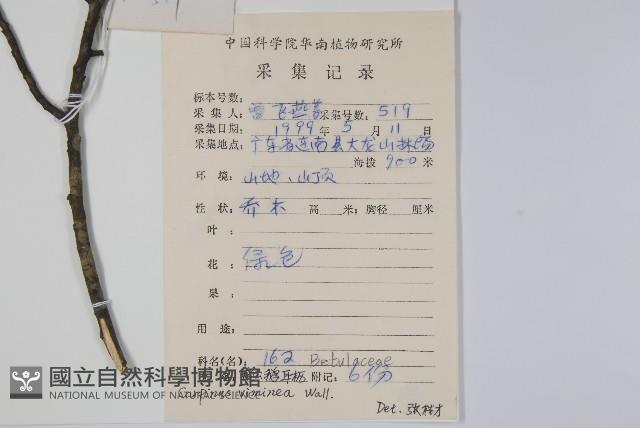 中国科学院华南植物研究所
采集记录
标本号数:
采集人: 曾飞燕等 采集号数: 519
采集日期: 1999 年 5 月 11 日
采集地点: 广东省连南县大龙山林场
海拨 900 米
环境: 山地、山顶
性状: 乔木 高 米; 胸径 厘米
叶:
花: 绿色
果:
用途:
科名(名): 162 Betulaceae
耳枥 附记: 6份
Carpinus viminea Wall.
Det. 张桂才
國立自然科學博物館
NATIONAL MUSEUM OF NATURAL SCIENCE